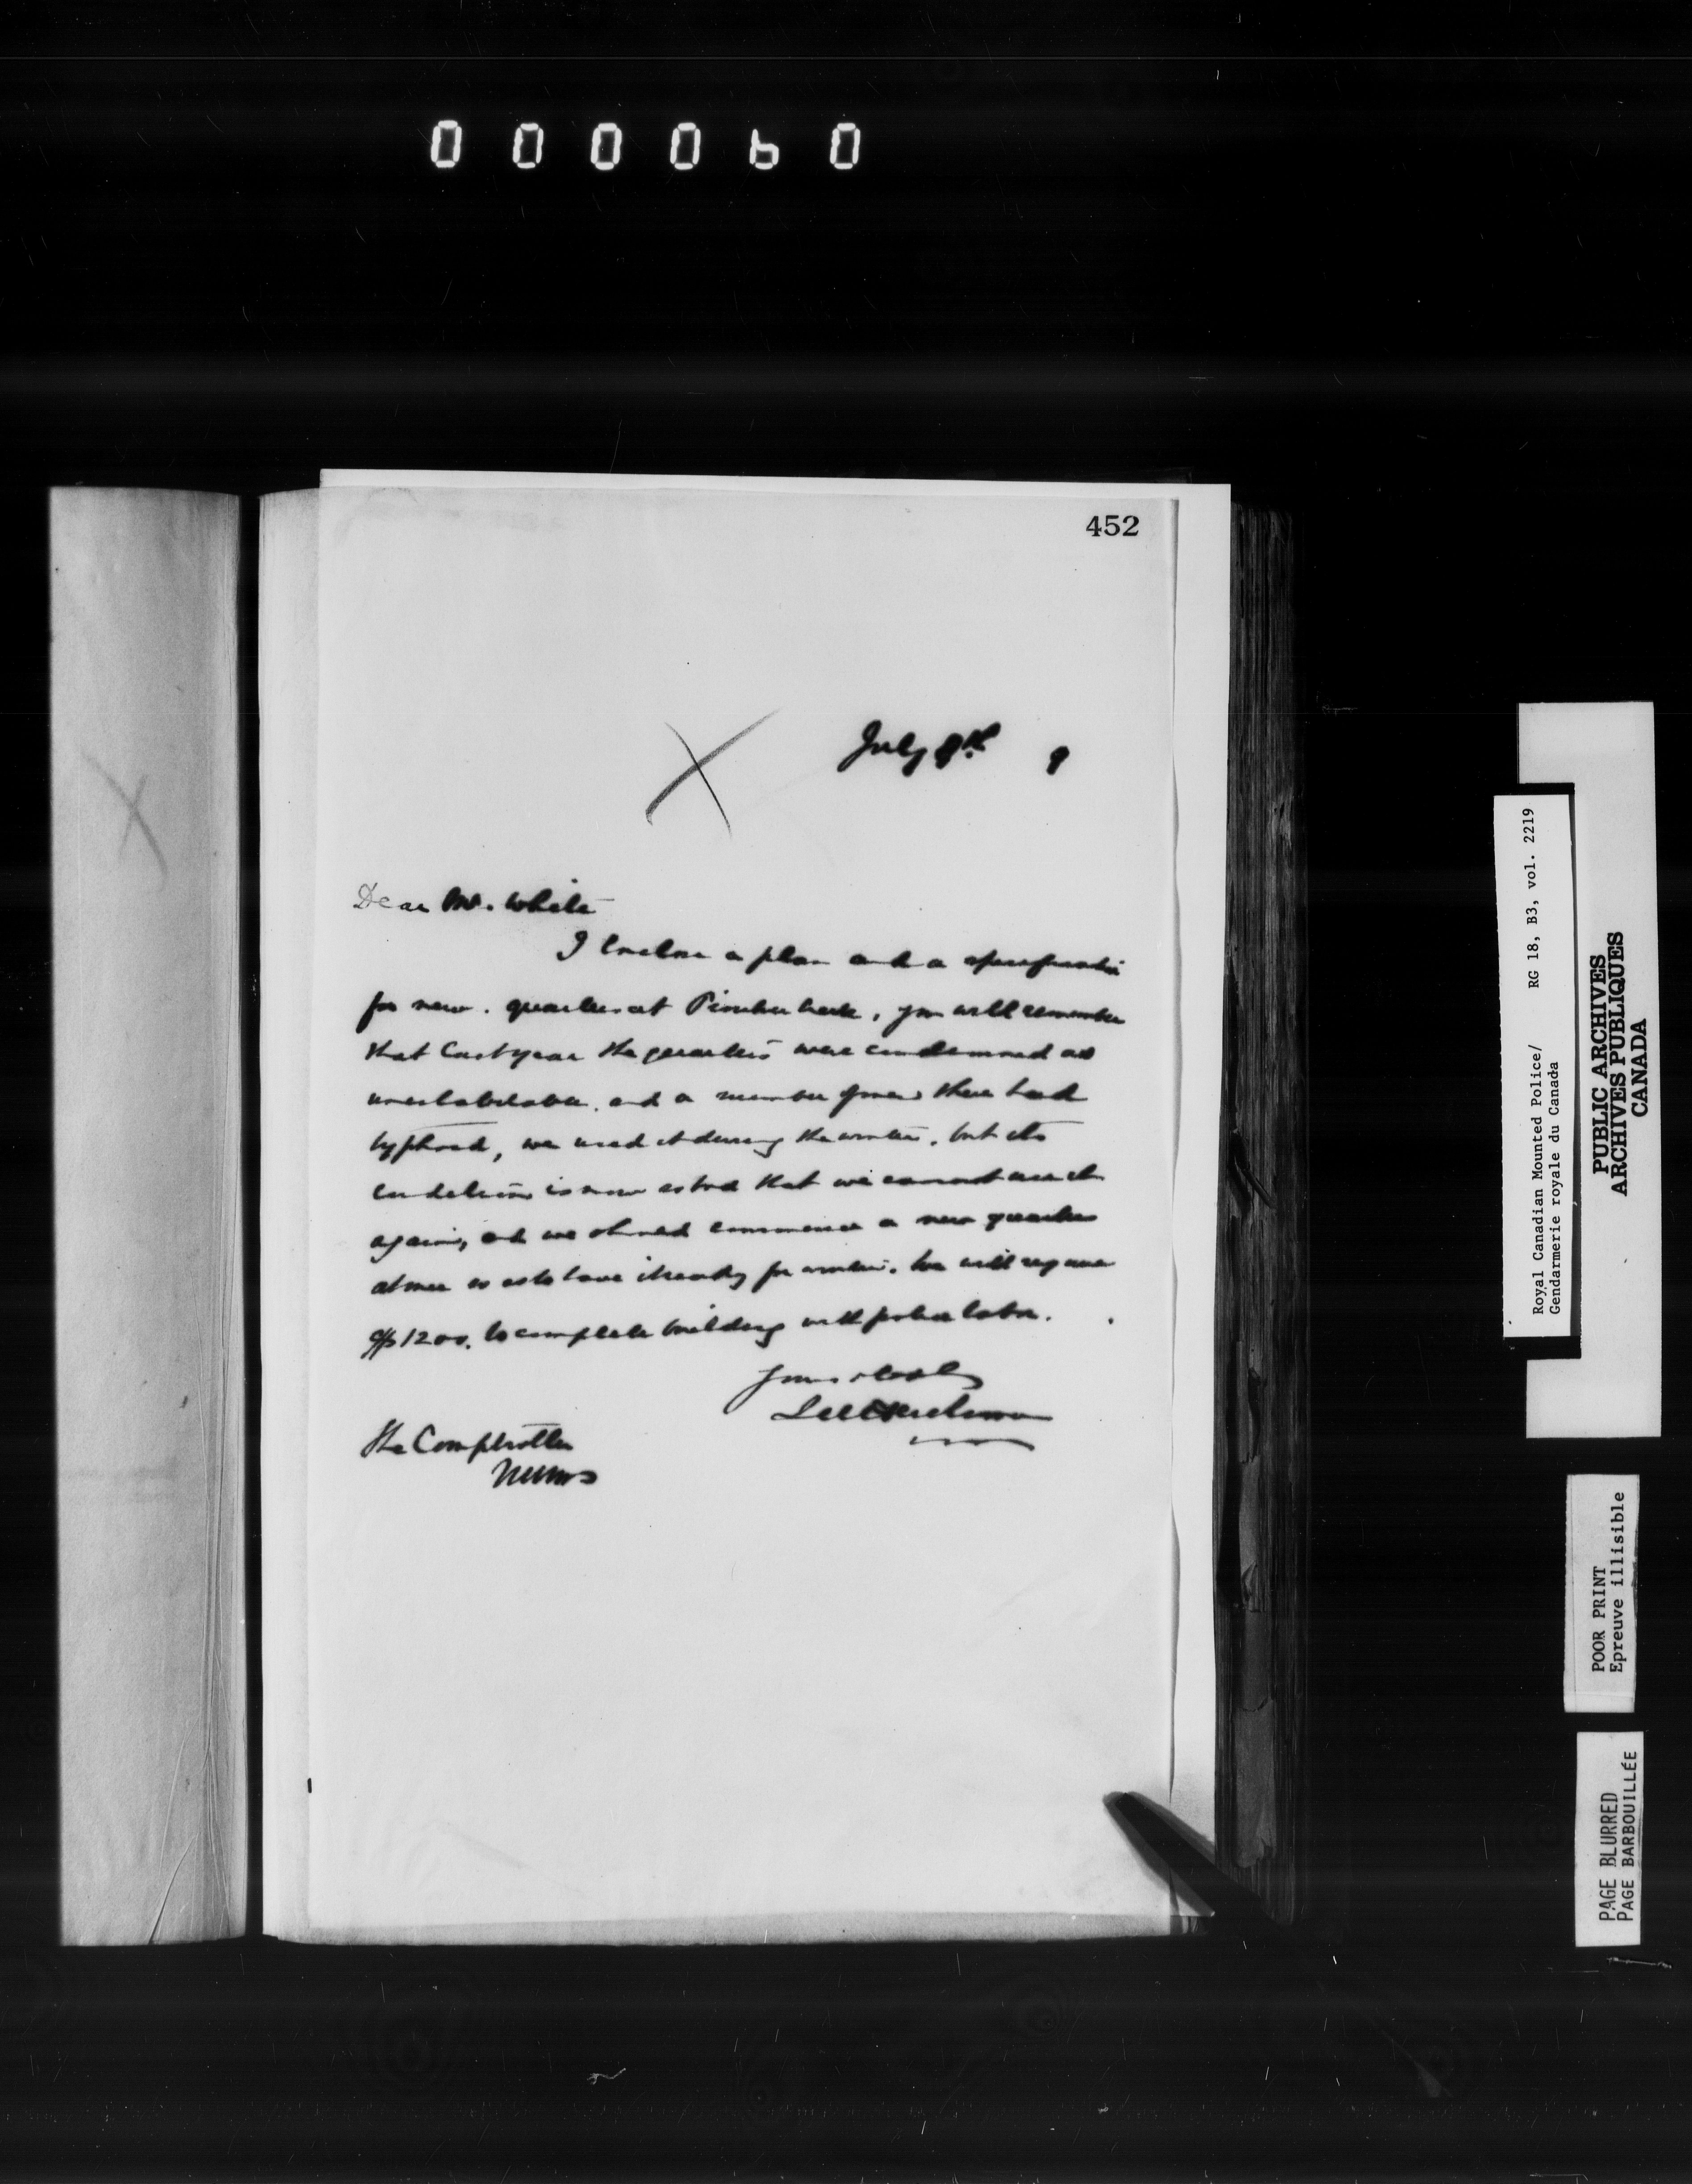 000060
452
July 8th 9
Dear Mr. White
I enclose a plan and a specification
for new quarters at Pincher Creek, you will remember
that last year the quarters were condemned as
uninhabitable. and a number of men there had
typhoid, we used it during the winter, but its
condition is now so bad that we cannot use it
again, and we should commence a new quarters
at once so as to have it ready for winter. We will require
$1200. to complete building with police labor.
Yours truly
The Comptroller
NWMP
Royal Canadian Mounted Police/ RG 18, B3, vol. 2219
Gendarmerie royale du Canada
PUBLIC ARCHIVES
ARCHIVES PUBLIQUES
CANADA
POOR PRINT
Epreuve illisible
PAGE BLURRED
PAGE BARBOUILLÉE